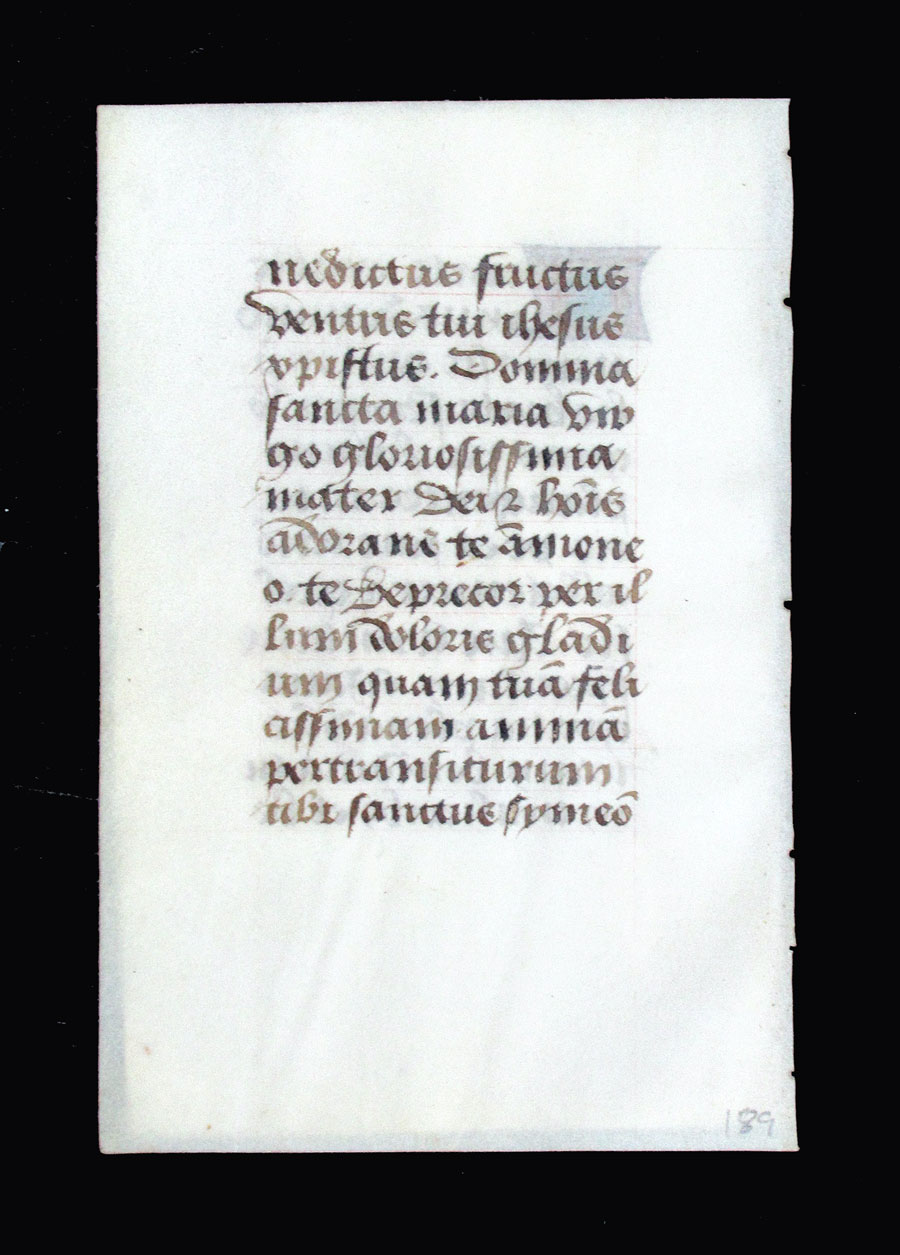 nedictus fructus
ventris tui ihesus
xpistus. Domina
sancta maria vir
go gloriosissima
mater Dei ⁊ hoīs
adorans te ām one
o. te deprecor per il
lum doloris gladi
um quam tuā feli
cissimam animā
pertransiturum
tibi sanctus symeō
189